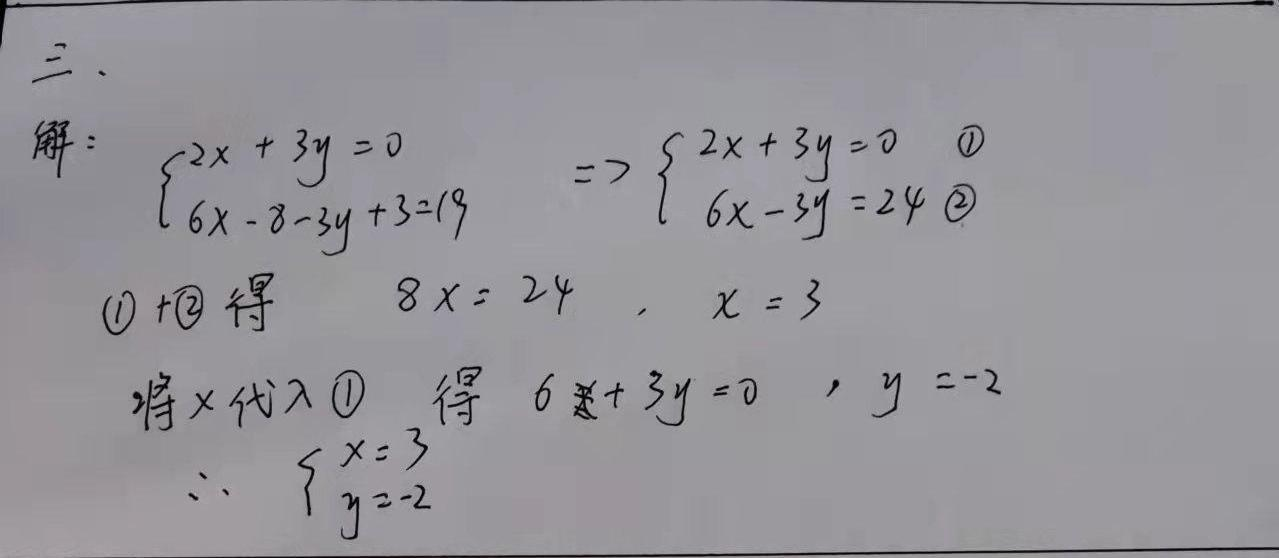 三、
解: {2x + 3y = 0 => {2x + 3y = 0 ①
{6x - 8 - 3y + 3 = 19 {6x - 3y = 24 ②
① + ② 得 8x = 24 , x = 3
将 x 代入 ① 得 6 + 3y = 0 , y = -2
∴ {x = 3
{y = -2